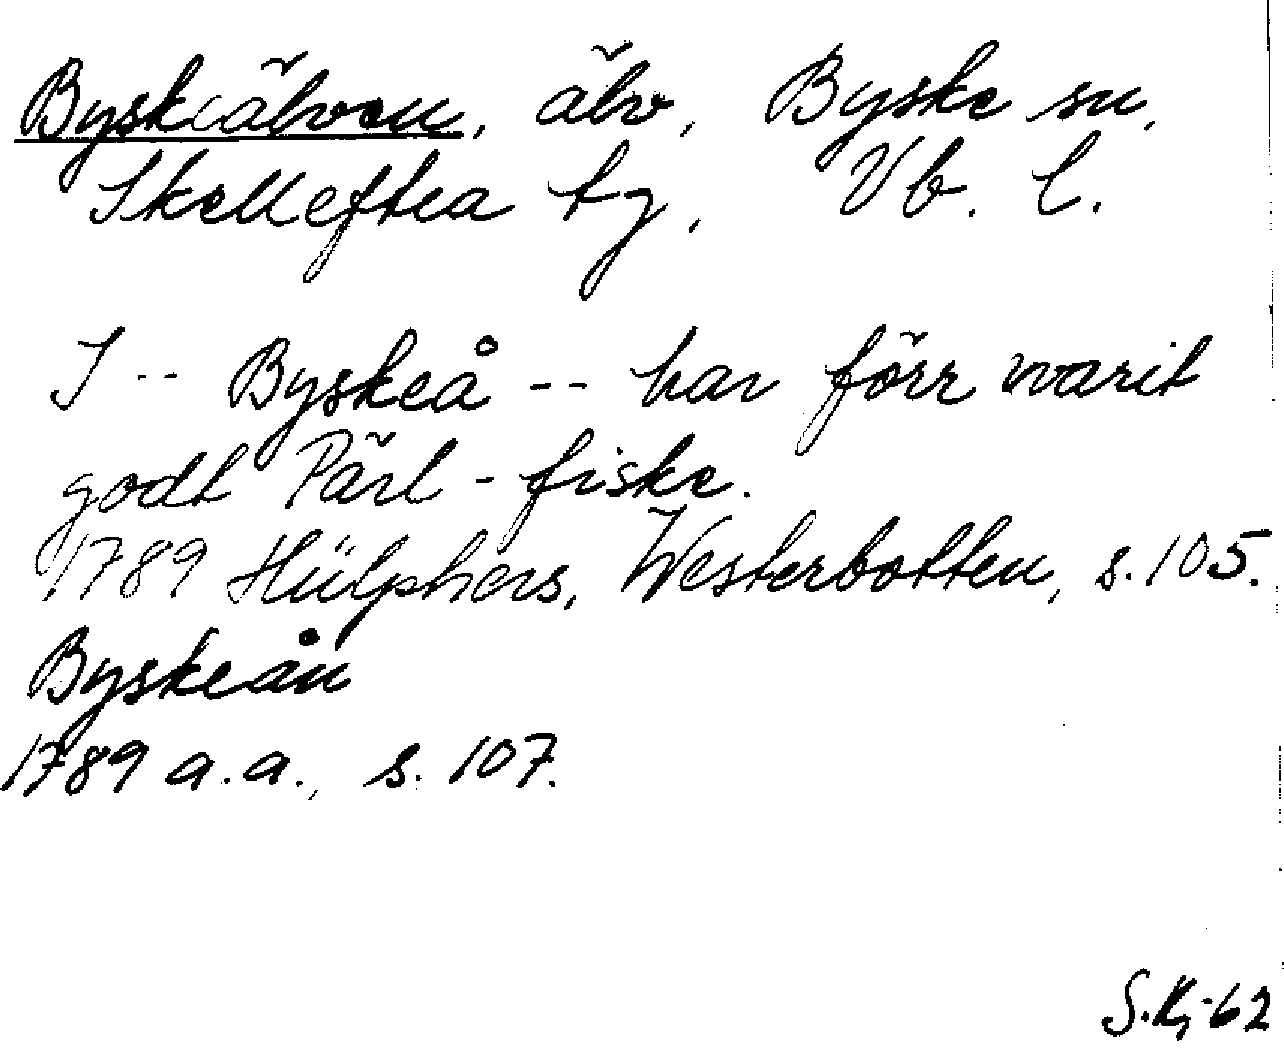 Byskeälven, älv, Byske sn,
Skelleftea tg, Vb. l.
I -- Byskeå -- har förr warit
godt Pärl-fiske.
1789 Hülphers, Westerbotten, s. 105.
Byskeån
1789 a.a., s. 107.
S.K,-62